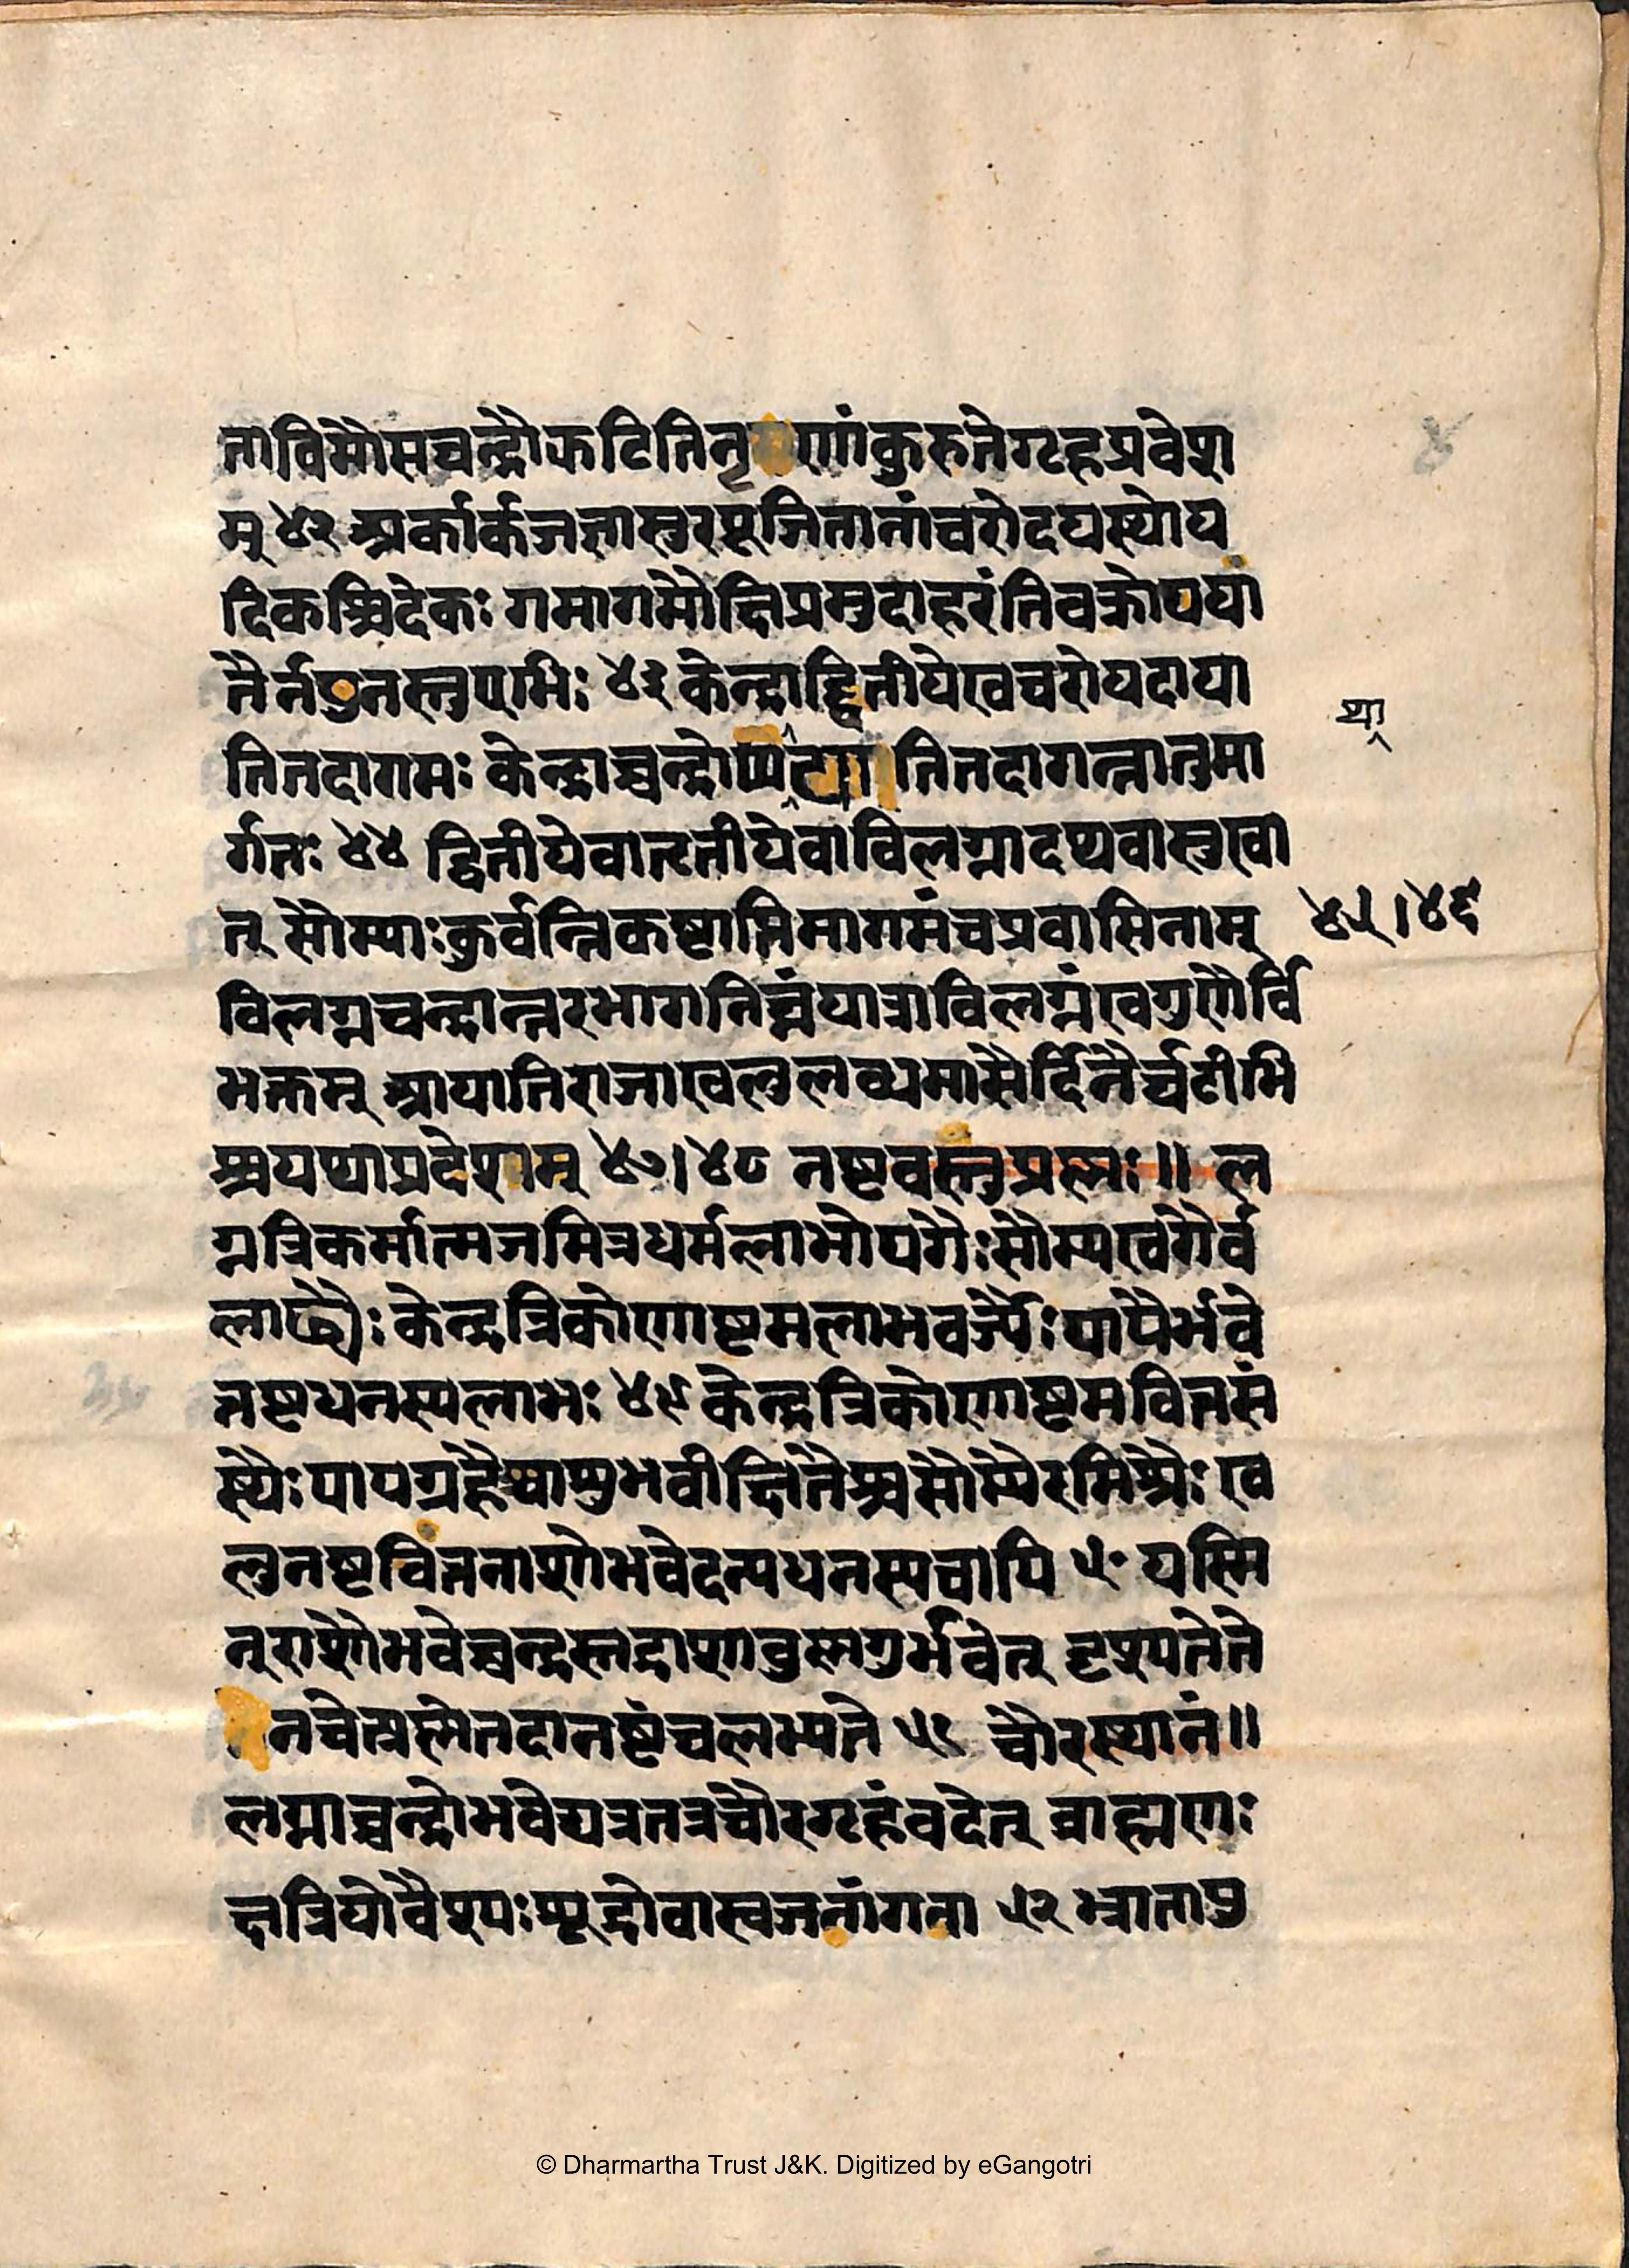 ताविमौसचन्द्रौफटितिनृणांकुरुतेगृहप्रवेश
म् ४२ अर्कार्कजज्ञासुरपूजितानांचरोदयस्थोय
दिकश्चिदेकः गमागमौक्षिप्रमुदाहरंतिवक्रोपया
तैर्नपुनस्तुएभिः ४३ केन्द्राद्द्वितीयेखेचरोयदाया
था
तितदागमः केन्द्राच्चन्द्रो तितदागन्तातुमा
र्गतः ४४ द्वितीयेवातृतीयेवाविलग्नादप्यवासुखा
त् सौम्याःकुर्वन्तिकष्टाप्तिमागमंचप्रवासिनाम् ४५।४६
विलग्नचन्द्रान्तरभागतिघ्नंयात्राविलग्नंखगुणैर्वि
भक्तम् आयातिराजाखलुलब्धमासैर्दिनैर्घटीभि
श्चयथाप्रदेशाम् ४७।४८ नष्टवस्तुप्रश्नः॥ ल
ग्नत्रिकर्मात्मजमित्रधर्मलाभोपगैःसौम्यखगैर्ब
लाढ्यैः केन्द्रत्रिकोणाष्टमलाभवर्ज्यैःपापैर्भवे
न्नष्टधनस्यलाभः ४९ केन्द्रत्रिकोणाष्टमवित्तसं
स्थैःपापग्रहैश्चाशुभवीक्षितैश्चसौम्यैरमिश्रैः ख
लुनष्टवित्तनाशोभवेदन्यधनस्यचापि ५० यस्मि
न्राशौभवेच्चन्द्रस्तद्राशावुस्नगुर्भवेत् दृश्यतेते
नचेत्प्रश्नेतदानष्टंचलभ्यते ५१ चौरस्थानं॥
लग्नाच्चन्द्रोभवेद्यत्रतत्रचौरगृहंवदेत् ब्राह्मणः
क्षत्रियोवैश्यःशूद्रोवास्वजनांगना ५२ भ्रातापु
© Dharmartha Trust J&K. Digitized by eGangotri